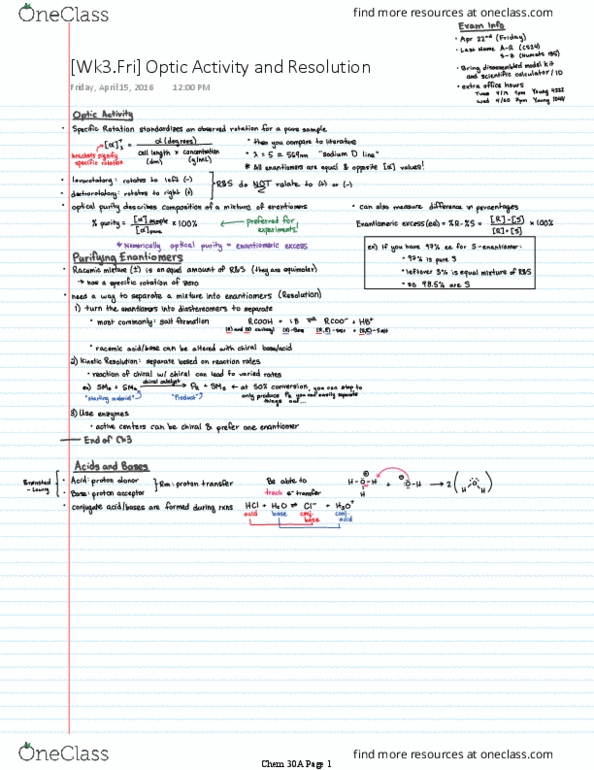 OneClass
find more resources at oneclass.com
Exam Info
• Apr 22nd (Friday)
• Last Name A-R (CS24)
• Bring disassembled model kit
and scientific calculator / ID
• extra office hours
[Wk3.Fri] Optic Activity and Resolution
Friday, April 15, 2016 12:00 PM
Optic Activity
• Specific Rotation standardizes an observed rotation for a pure sample
[α] = α (degrees) / cell length × concentration
(dm) (g/mL)
brackets signify
specific rotation
• then you compare to literature
"sodium D line"
* All enantiomers are equal & opposite [α] values!
• levorotatory: rotates to left (-)
• dextrorotatory: rotates to right (+)
R&S do NOT relate to (+) or (-)
• optical purity describes composition of a mixture of enantiomers
% purity = [α]sample / [α]pure × 100%
← preferred for
experiments!
* Numerically optical purity = enantiomeric excess
• can also measure difference in percentages
Enantiomeric excess (ee) = %R - %S = [R]-[S] / [R]+[S] × 100%
ex) If you have 97% ee for S-enantiomer:
• 97% is pure S
• leftover 3% is equal mixture of R&S
• so 98.5% are S
Purifying Enantiomers
• Racemic mixture (±) is an equal amount of R&S (they are equimolar)
→ has a specific rotation of zero
• need a way to separate a mixture into enantiomers (Resolution)
1) turn the enantiomers into diastereomers to separate
• most commonly: salt formation RCOOH + :B ⇌ RCOO⁻ + HB⁺
• racemic acid/base can be altered with chiral base/acid
2) Kinetic Resolution: separate based on reaction rates
• reaction of chiral w/ chiral can lead to varied rates
ex) SMR + SMS chiral catalyst → PR + SMS ← at 50% conversion, you can stop to
only produce PR you can easily separate
things out...
"starting material" "Product"
3) Use enzymes
• active centers can be chiral & prefer one enantiomer
End of Ch3
Acids and Bases
Brønsted
-Lowry
• Acid: proton donor
• Base: proton acceptor
Rxn: proton transfer
Be able to
track e⁻ transfer
• conjugate acid/bases are formed during rxns HCl + H₂O ⇌ Cl⁻ + H₃O⁺
acid base conj. base conj. acid
OneClass
find more resources at oneclass.com
Chem 30A Page 1